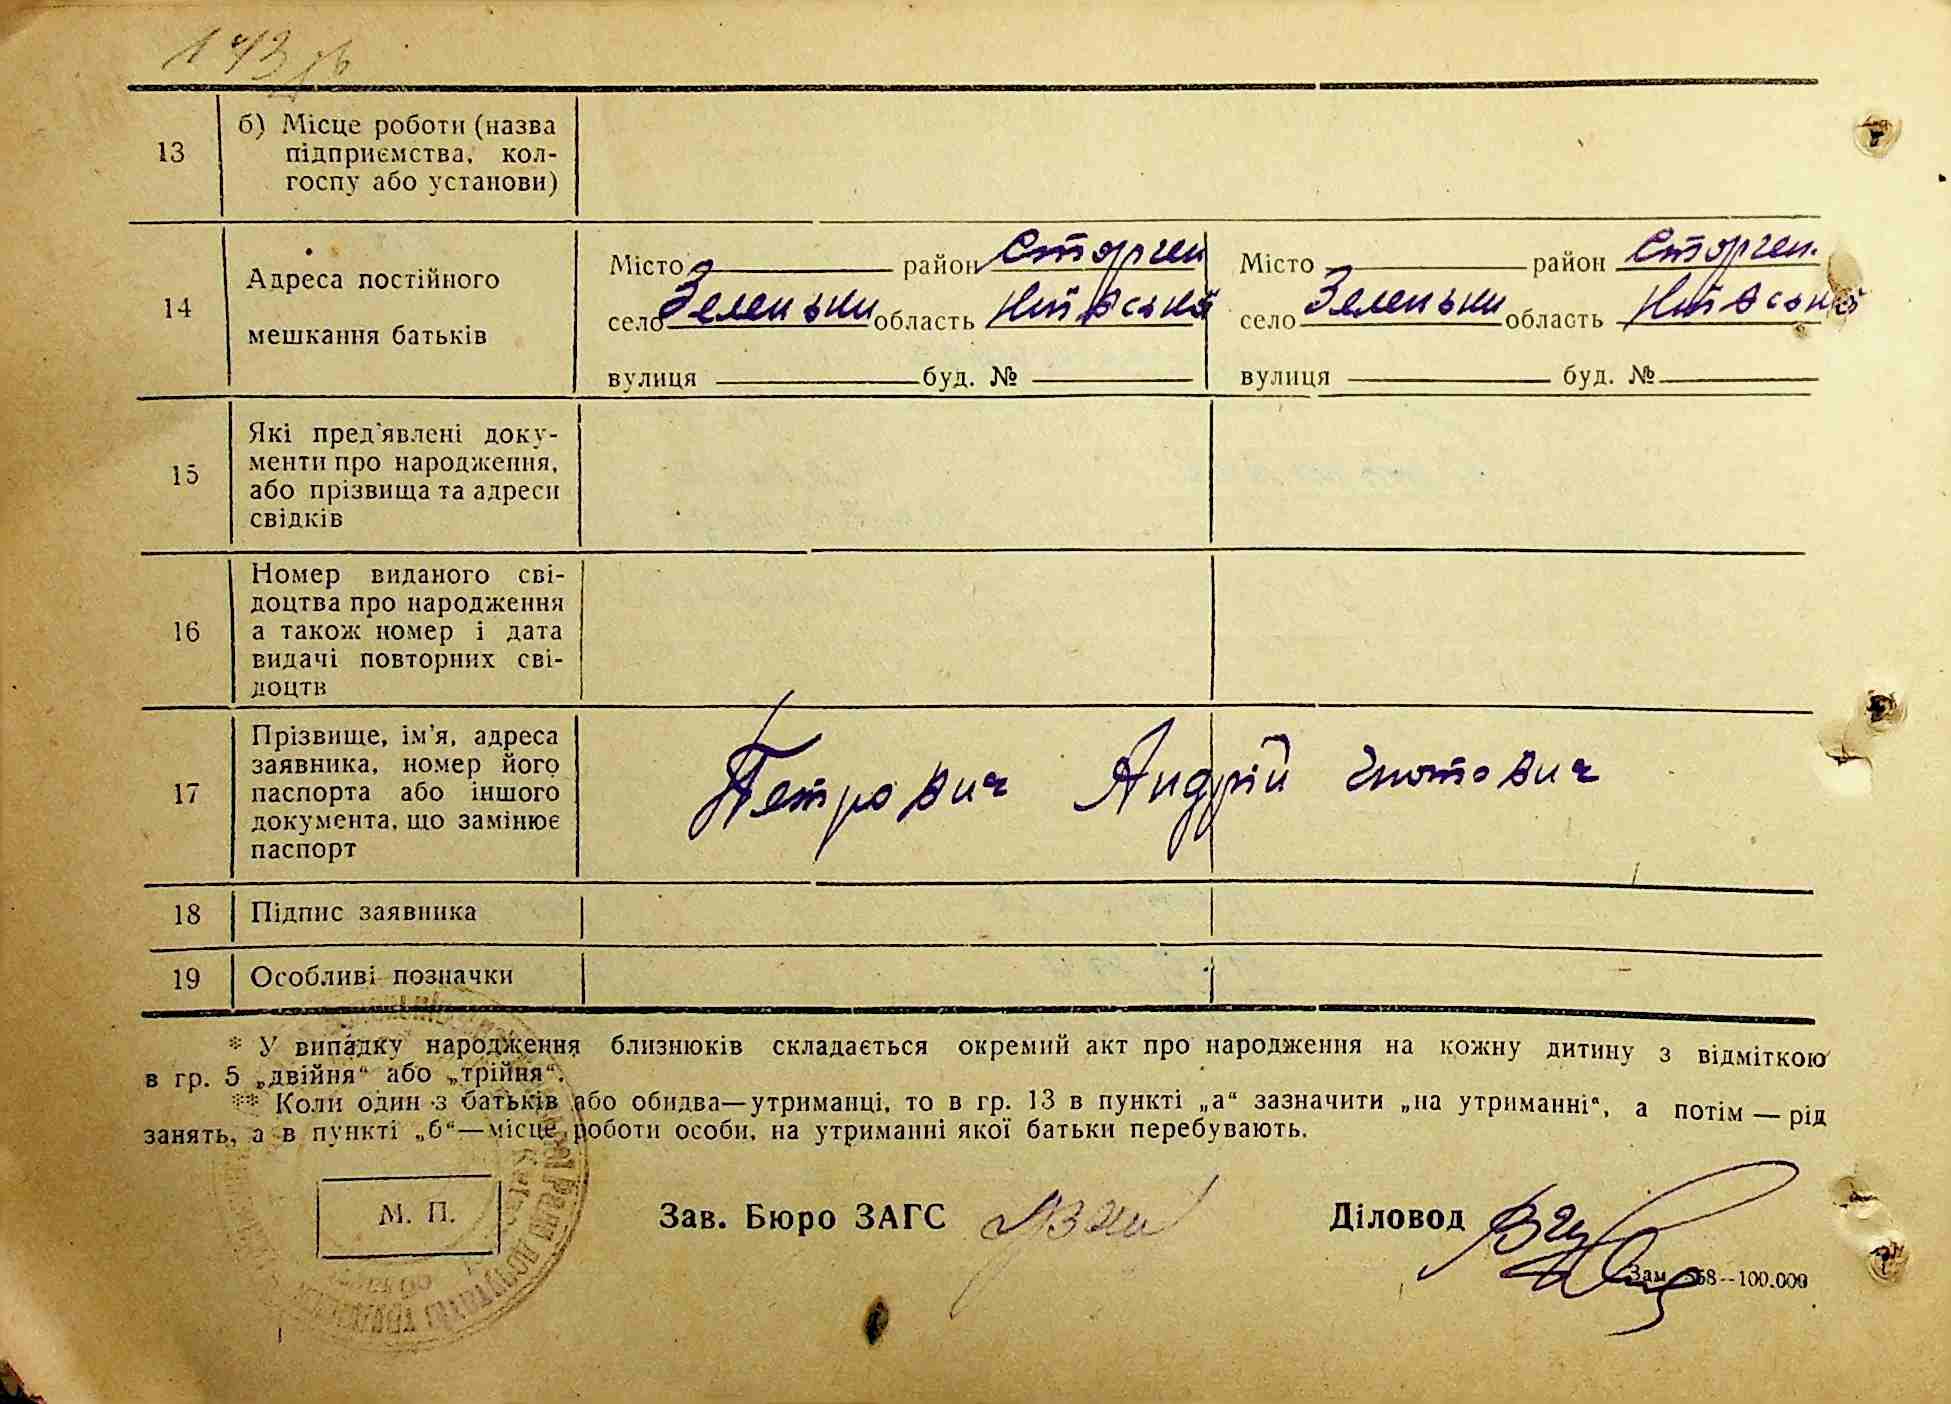 143 зв
13
б) Місце роботи (назва
підприємства, кол-
госпу або установи)
14
Адреса постійного
мешкання батьків
Місто район
село Зеленьки область Київська
вулиця буд. №
Місто район
село Зеленьки область Київська
вулиця буд. №
15
Які пред'явлені доку-
менти про народження,
або прізвища та адреси
свідків
16
Номер виданого сві-
доцтва про народження
а також номер і дата
видачі повторних сві-
доцтв
17
Прізвище, ім'я, адреса
заявника, номер його
паспорта або іншого
документа, що замінює
паспорт
Петрович Андрій
18 Підпис заявника
19 Особливі позначки
* У випадку народження близнюків складається окремий акт про народження на кожну дитину з відміткою
в гр. 5 „двійня“ або „трійня“.
** Коли один з батьків або обидва—утриманці, то в гр. 13 в пункті „а“ зазначити „на утриманні“, а потім — рід
занять, а в пункті „б“—місце роботи особи, на утриманні якої батьки перебувають.
М. П.
Зав. Бюро ЗАГС
Діловод
Зам. 558--100.000